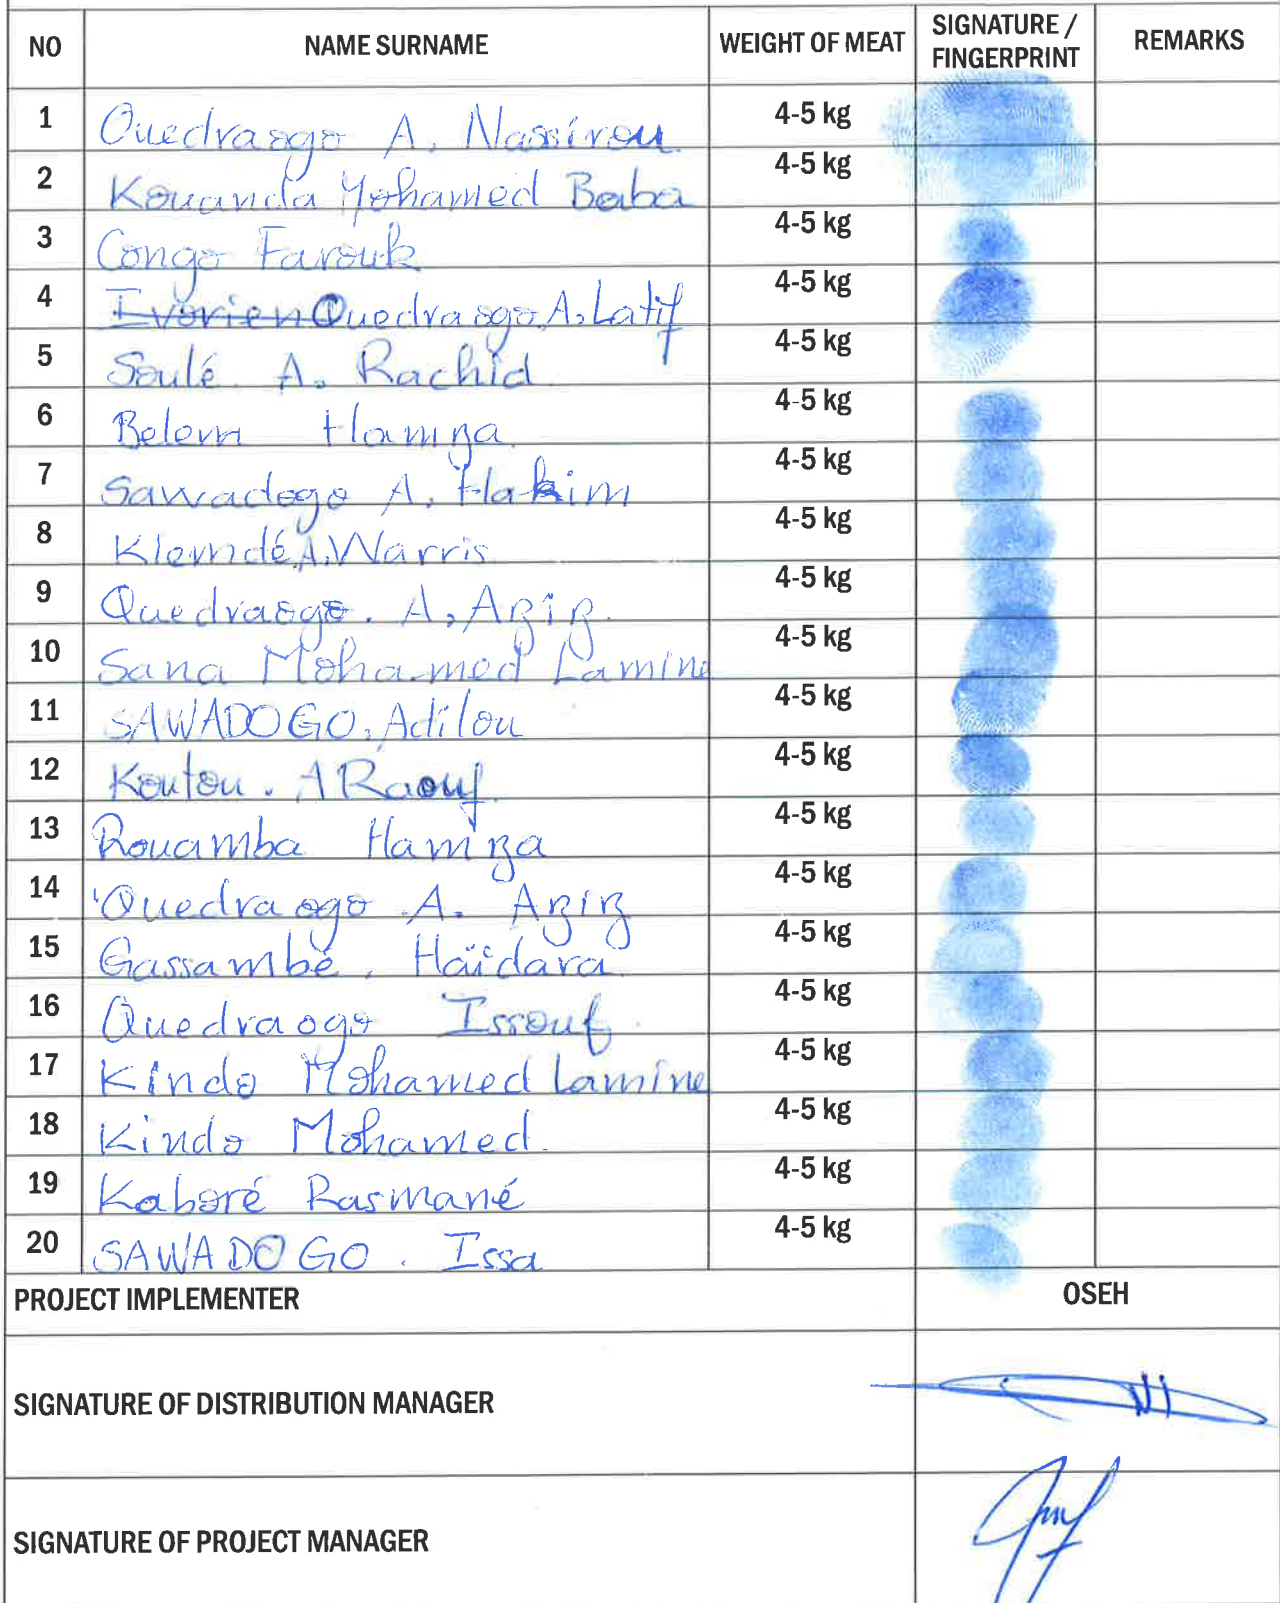 NO NAME SURNAME WEIGHT OF MEAT SIGNATURE / FINGERPRINT REMARKS
1 Ouedraogo A. Nassirou 4-5 kg
2 Kouanda Mohamed Baba 4-5 kg
3 Congo Farouk 4-5 kg
4 Ivorien Ouedraogo A. Latif 4-5 kg
5 Soulé A. Rachid 4-5 kg
6 Belem Hamza 4-5 kg
7 Sawadogo A. Hakim 4-5 kg
8 Kiemdé A. Warris 4-5 kg
9 Ouedraogo. A. Aziz 4-5 kg
10 Sana Mohamed Lamine 4-5 kg
11 SAWADOGO. Adilou 4-5 kg
12 Koutou. A Raouf 4-5 kg
13 Rouamba Hamza 4-5 kg
14 Ouedraogo A. Aziz 4-5 kg
15 Gassambé. Haïdara 4-5 kg
16 Ouedraogo Issouf 4-5 kg
17 Kindo Mohamed Lamine 4-5 kg
18 Kindo Mohamed. 4-5 kg
19 Kaboré Rasmané 4-5 kg
20 SAWADOGO. Issa 4-5 kg
PROJECT IMPLEMENTER OSEH
SIGNATURE OF DISTRIBUTION MANAGER
SIGNATURE OF PROJECT MANAGER